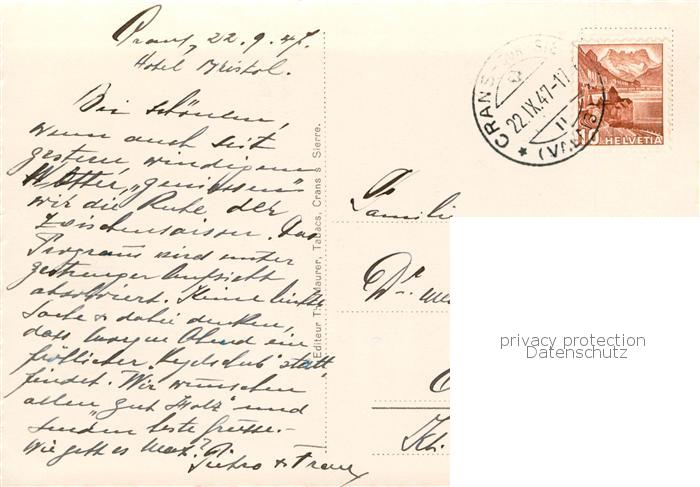 Crans, 22.9.47.
Hotel Bristol.
Bei schönem,
wenn auch seit
gestern windigem
Wetter, „geniessen"
wir die Ruhe der
Zwischensaison. Das
Programm wird unter
gestrenger Aufsicht
absolviert. Keine leichte
Sache &
dass morgen Abend ein
fröhlicher „Kegelschub" statt-
findet. Wir wünschen
allen „gut Holz" und
senden beste Grüsse.-
Wie geht es Max?
Pietro &
Editeur Th. Maurer, Tabacs, Crans s Sierre.
CRANS SUR SIERRE
22.IX.47-17
(VALAIS)
10 HELVETIA
Familie
Dr. med
privacy protection
Datenschutz